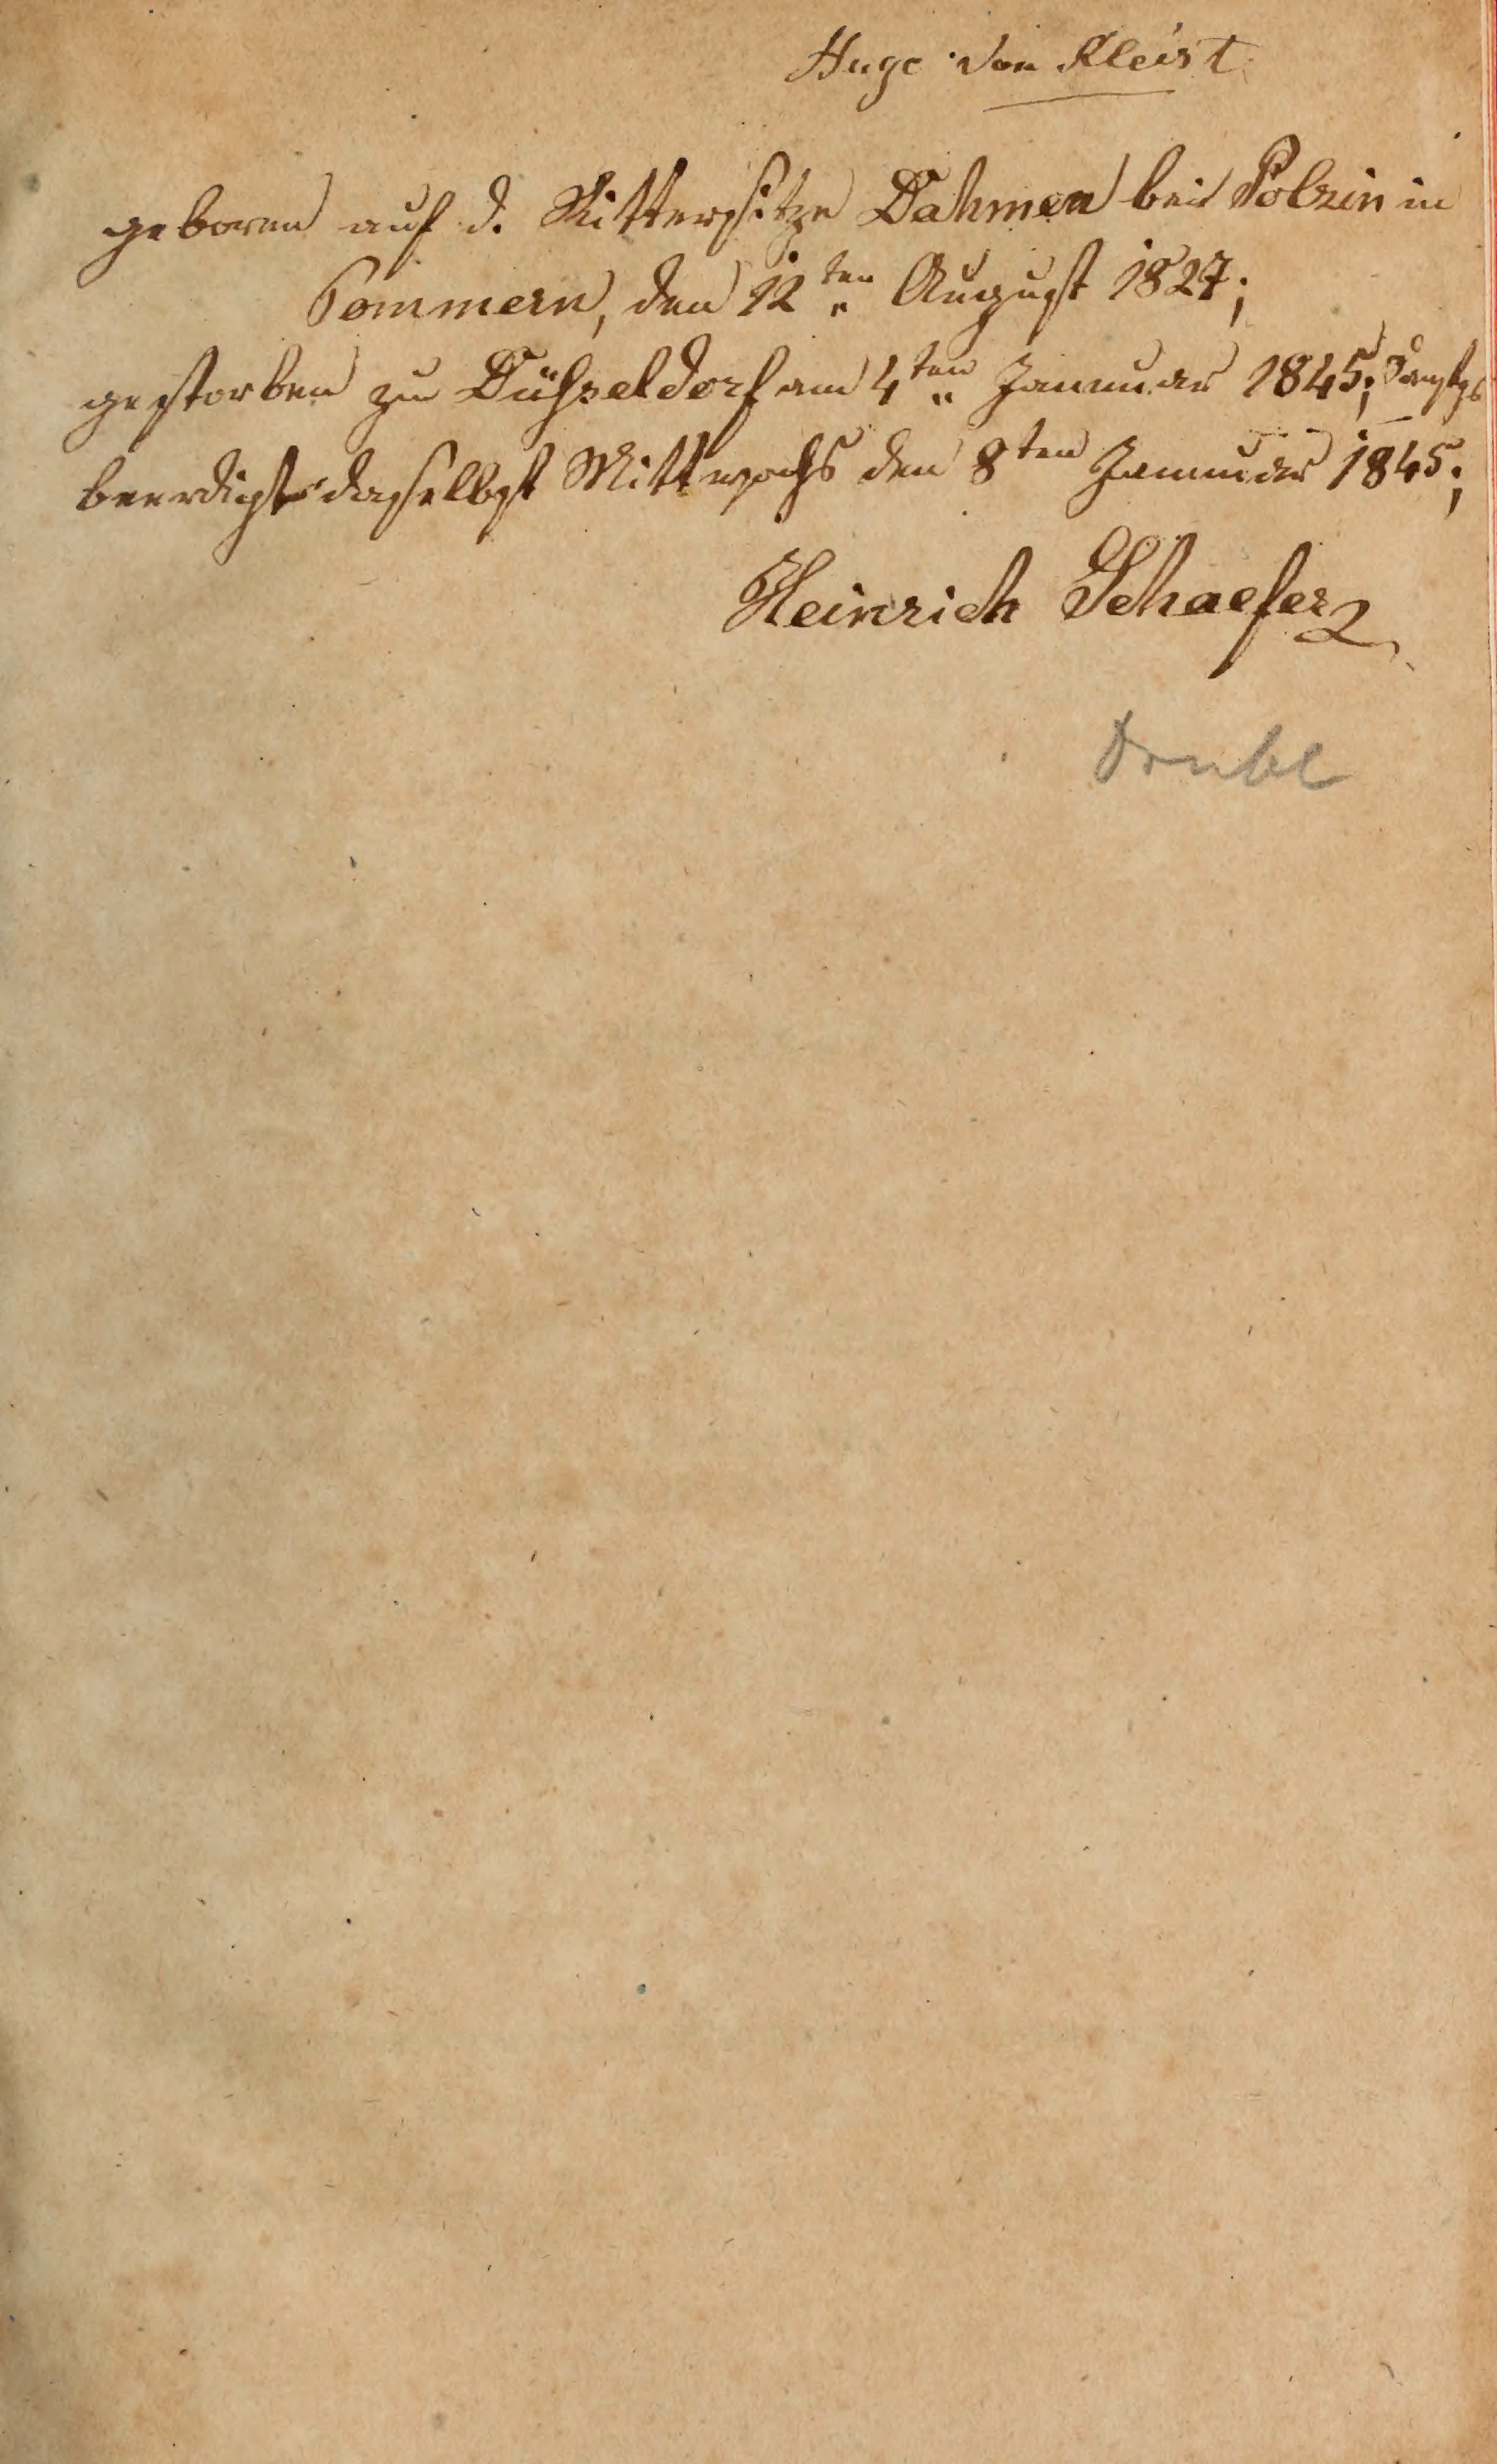 Hugo von Kleist
geboren auf d. Rittersitze Dahmen bei Polzin in
Pommern, den 12ten August 1827;
gestorben zu Düsseldorf am 4ten Januar 1845;
beerdigt daselbst Mittwochs den 8ten Januar 1845;
Heinrich Schaefer